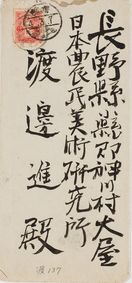 長野縣小縣郡神川村大屋
日本農民美術研究所
渡邊進殿
渡137